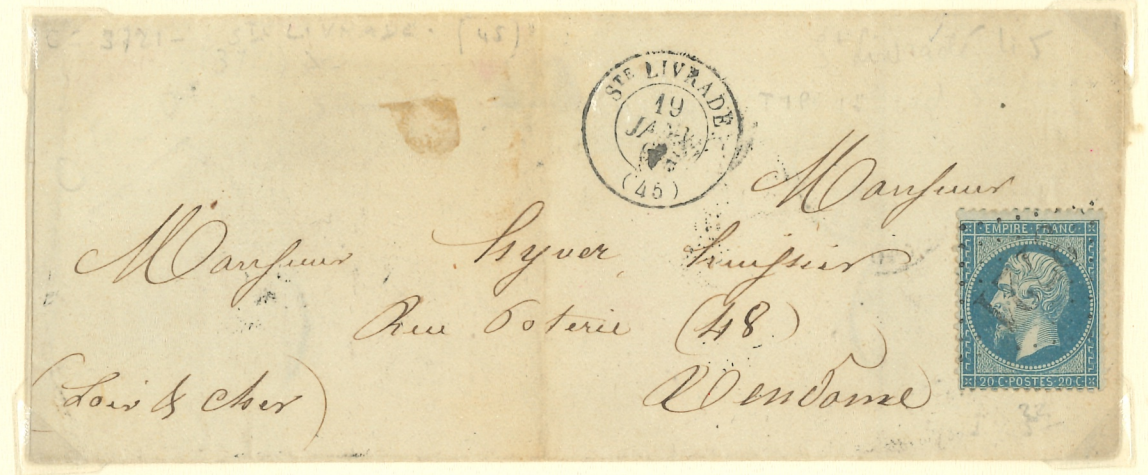 STE LIVRADE
19
JANV.
(45)
Monsieur
Monsieur Hyver huissier
Rue Poterie (48)
Vendome
(Loir & cher)
EMPIRE FRANC
20 C POSTES 20 C